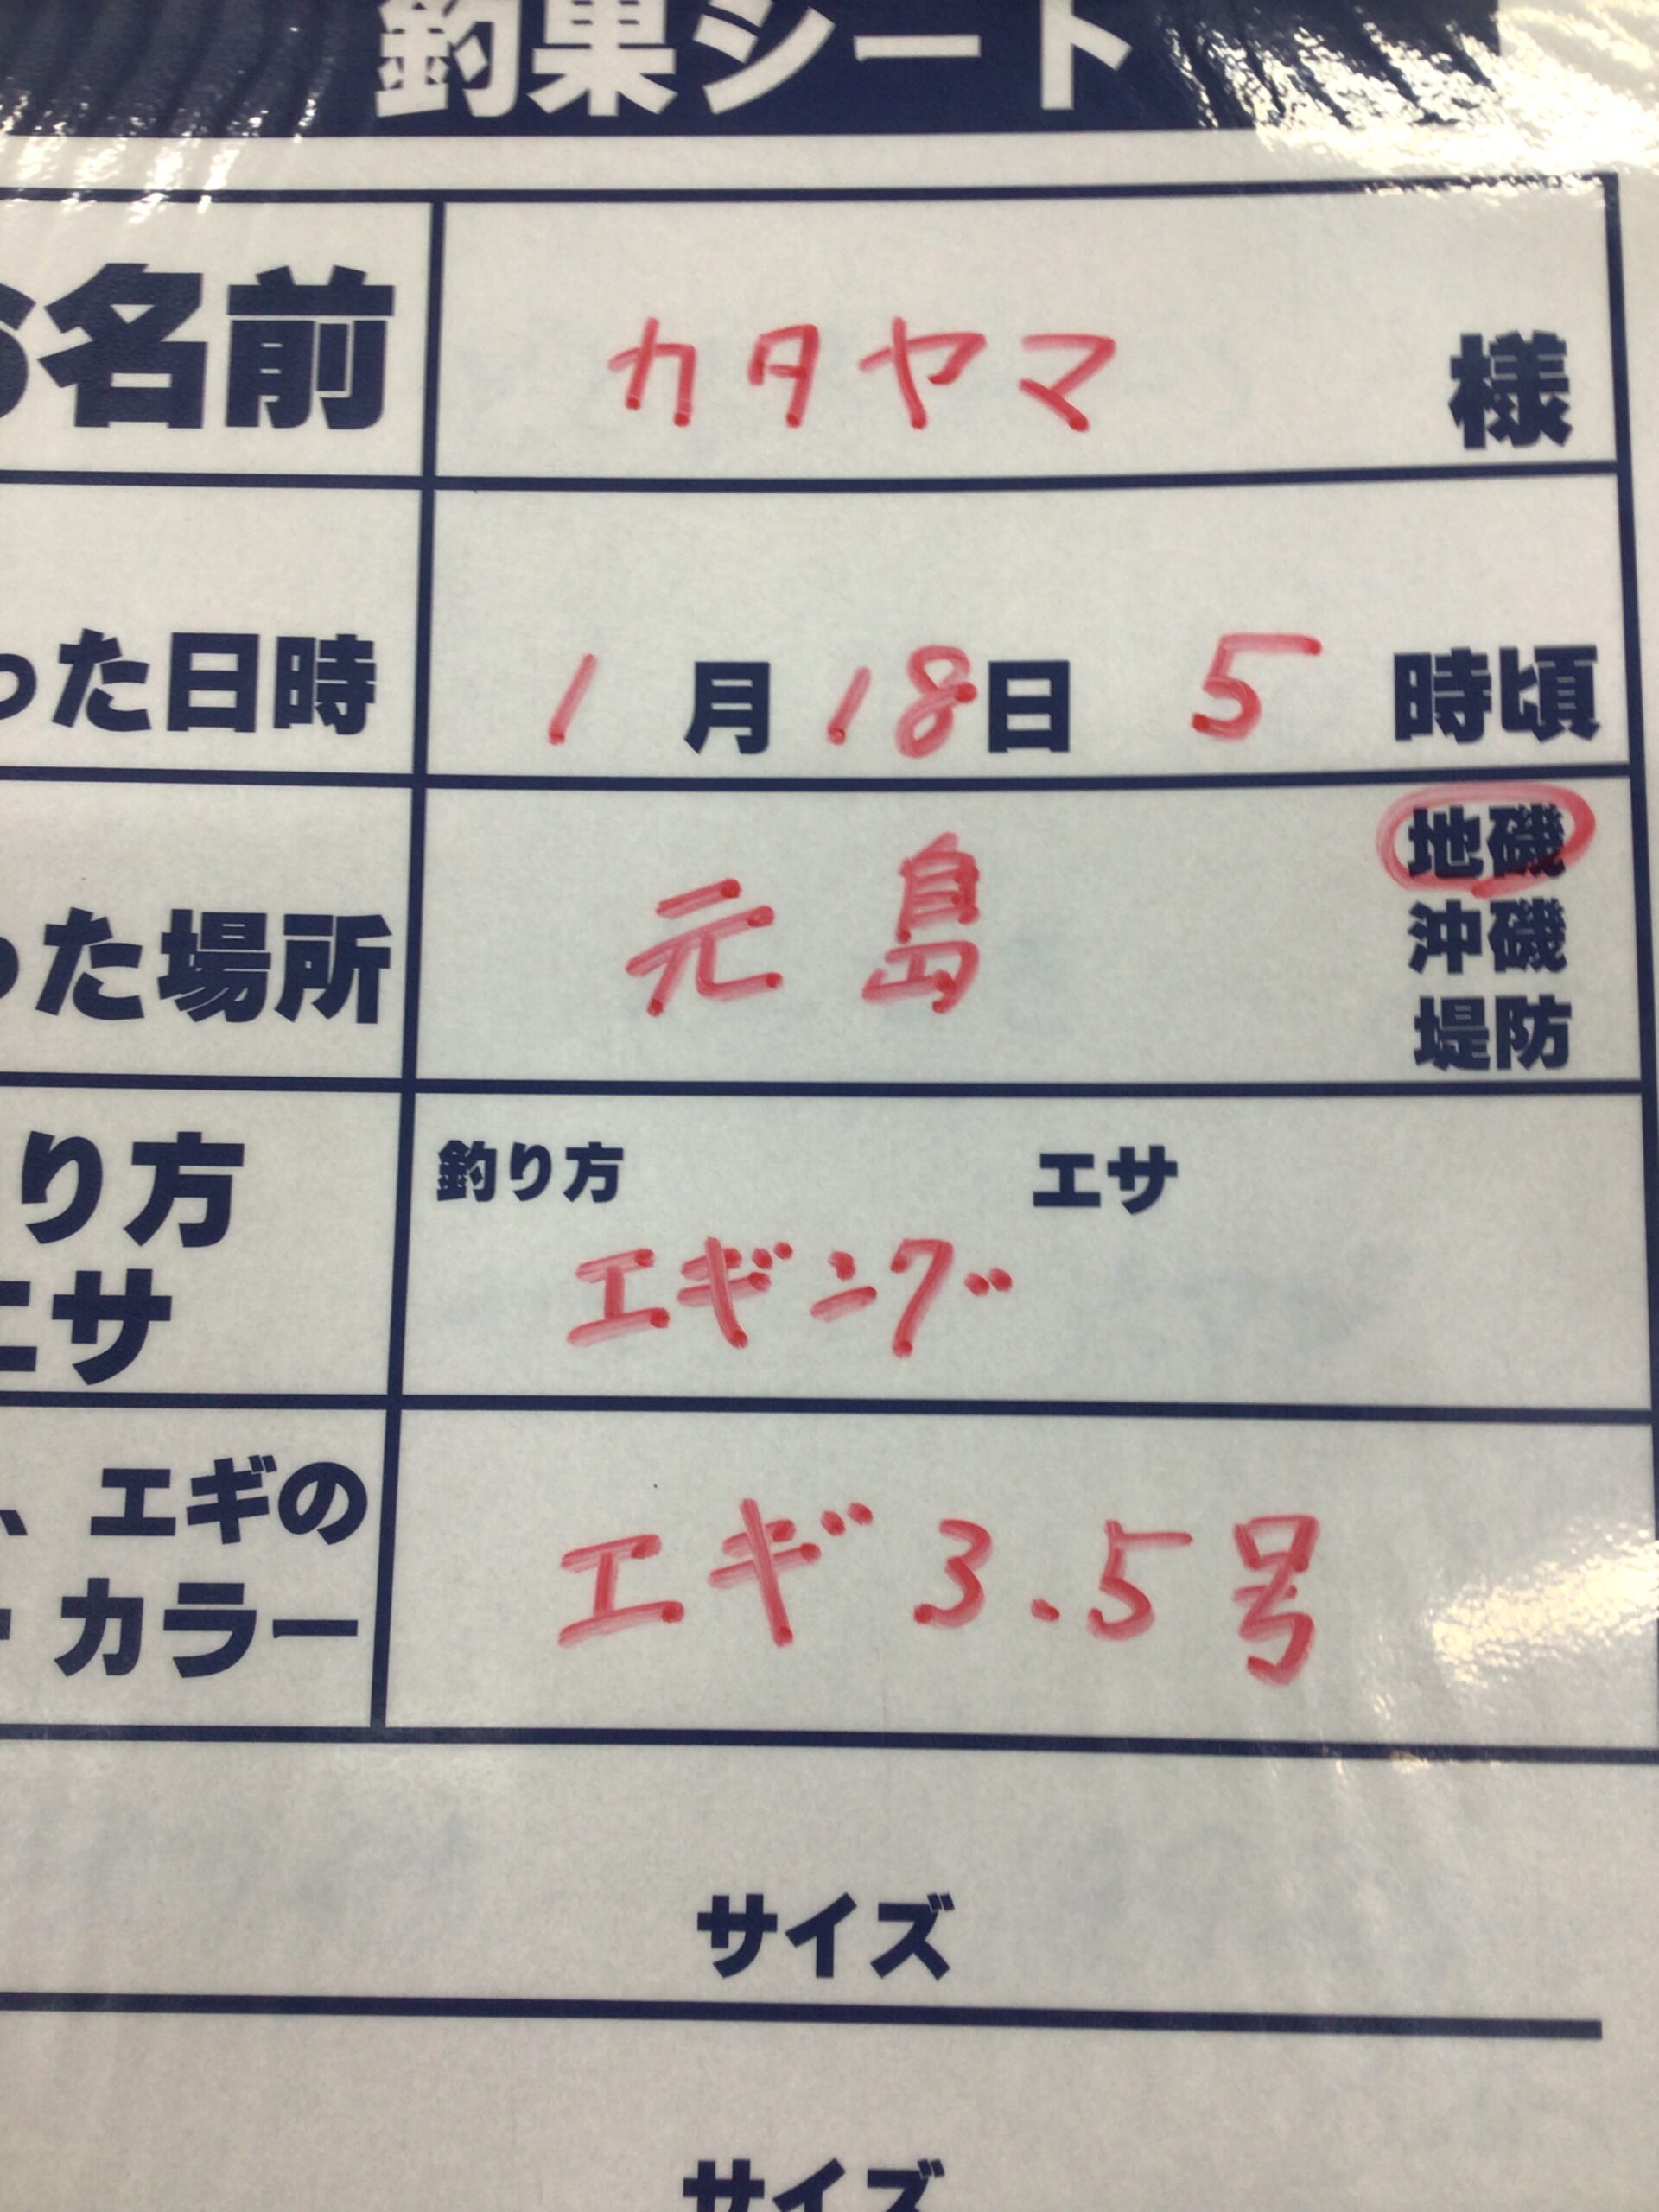 釣果シート
お名前 カタヤマ 様
った日時 1月18日 5時頃
った場所 元島 地磯
沖磯
堤防
り方 釣り方 エサ
エサ エギング
、エギの エギ3.5号
カラー
サイズ
サイズ